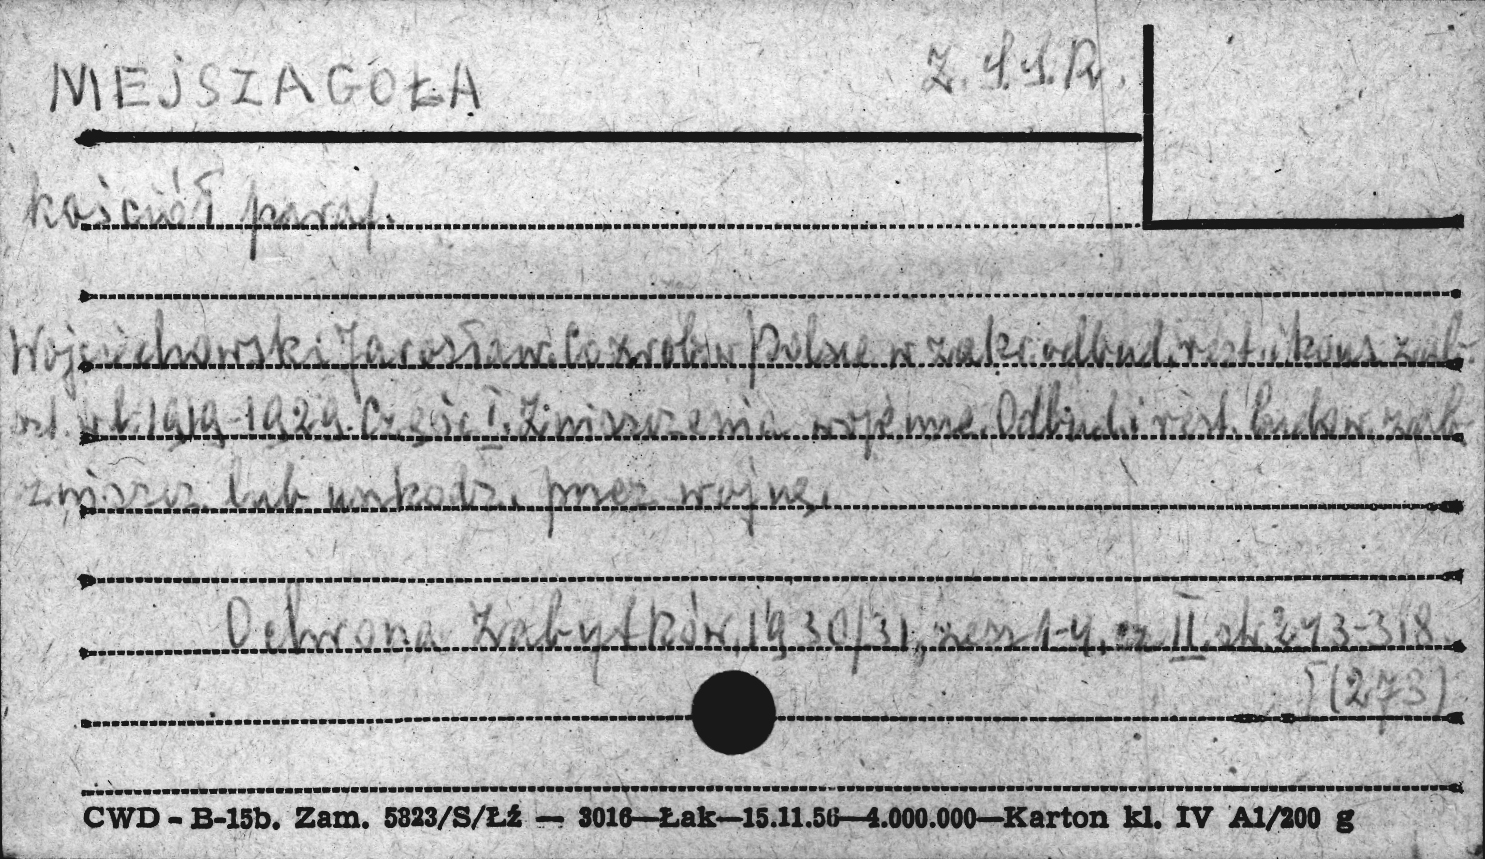 MEJSZAGOŁA Z.S.S.R.
kościół paraf.
Wojciechowski Jarosław. Co zrob. w Polsce w zakr. odbud. rest. i kons. zab.
szt. w l. 1919-1929. Część I. Zniszczenia wojenne. Odbud. i rest. budow. zab.
zniszcz. lub uszkodz. przez wojnę.
Ochrona Zabytków, 1930/31, zesz 1-4, cz II. str 243-318.
(273)
CWD - B-15b. Zam. 5823/S/Łź — 3016—Łak—15.11.56—4.000.000—Karton kl. IV A1/200 g